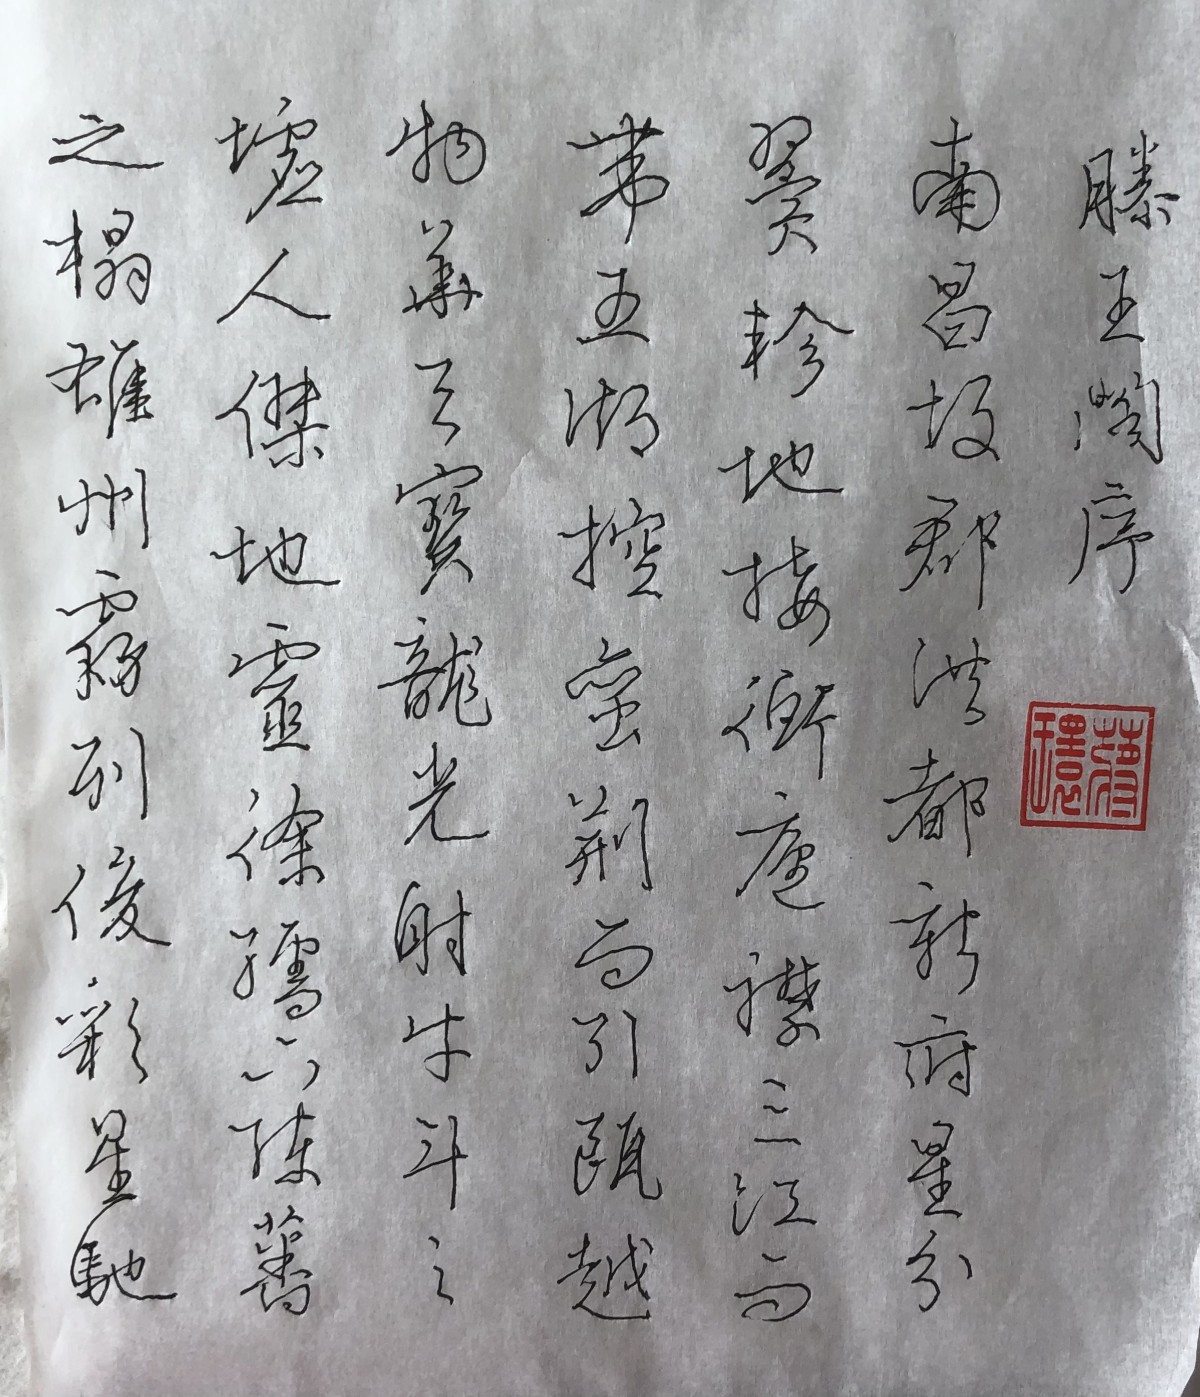 滕王閣序
南昌故郡洪都新府星分
翼軫地接衡廬襟三江而
帶五湖控蠻荊而引甌越
物華天寶龍光射牛斗之
墟人傑地靈徐孺下陳蕃
之榻雄州霧列俊彩星馳